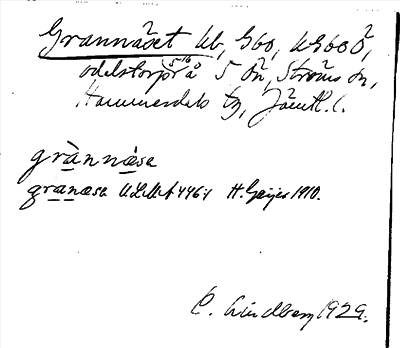 Grannäset lb, G60, KG60 Ö,
odelstorp på S ön, Ströms sn,
Hammerdals tg, Jämtl. l.
grànnǽsa
granæsa ULMA 446:1 H. Geijer 1910.
C. Lindberg 1929.